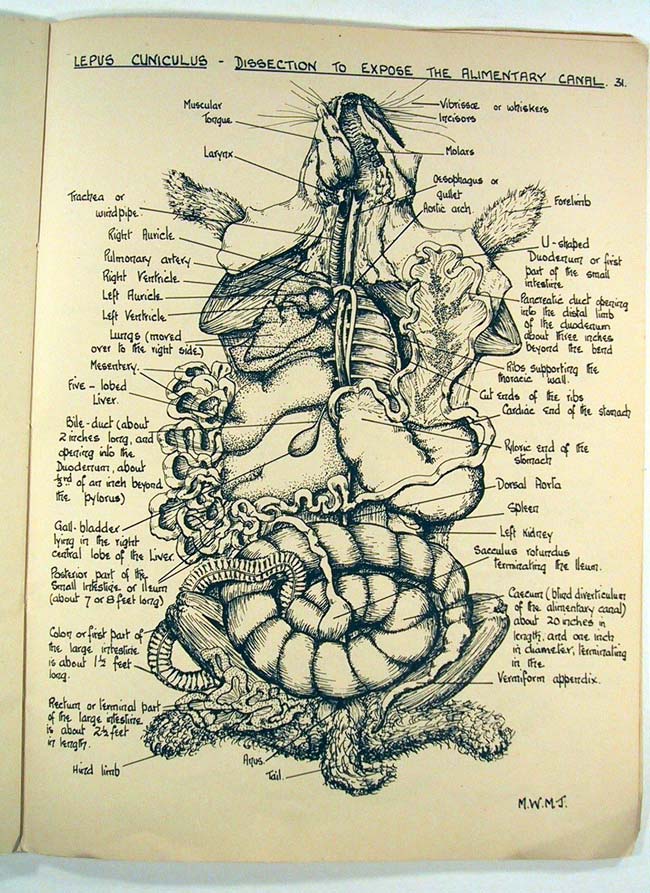 LEPUS CUNICULUS - DISSECTION TO EXPOSE THE ALIMENTARY CANAL. 31.
Muscular
Tongue
Larynx
Trachea or
windpipe.
Right Auricle
Pulmonary artery
Right Ventricle
Left Auricle
Left Ventricle
Lungs (moved
over to the right side.)
Mesentery.
Five-lobed
Liver.
Bile-duct (about
2 inches long, and
opening into the
Duodenum, about
⅓rd of an inch beyond
the pylorus)
Gall-bladder
lying in the right
central lobe of the Liver.
Posterior part of the
Small intestine or Ileum
(about 7 or 8 feet long)
Colon or first part of
the large intestine
is about 1½ feet
long.
Rectum or terminal part
of the large intestine
is about 2½ feet
in length.
Hind limb
Anus.
Tail.
Vibrissae or whiskers
Incisors
Molars
Oesophagus or
gullet
Aortic arch.
Forelimb
U-shaped
Duodenum or first
part of the small
intestine
Pancreatic duct opening
into the distal limb
of the duodenum
about three inches
beyond the bend
Ribs supporting the
thoracic wall.
Cut ends of the ribs
Cardiac end of the stomach
Pyloric end of the
stomach
Dorsal Aorta
Spleen
Left Kidney
Sacculus rotundus
terminating the Ileum.
Caecum (blind diverticulum
of the alimentary canal)
about 20 inches in
length, and one inch
in diameter, terminating
in the
Vermiform appendix.
M.W.M.J.